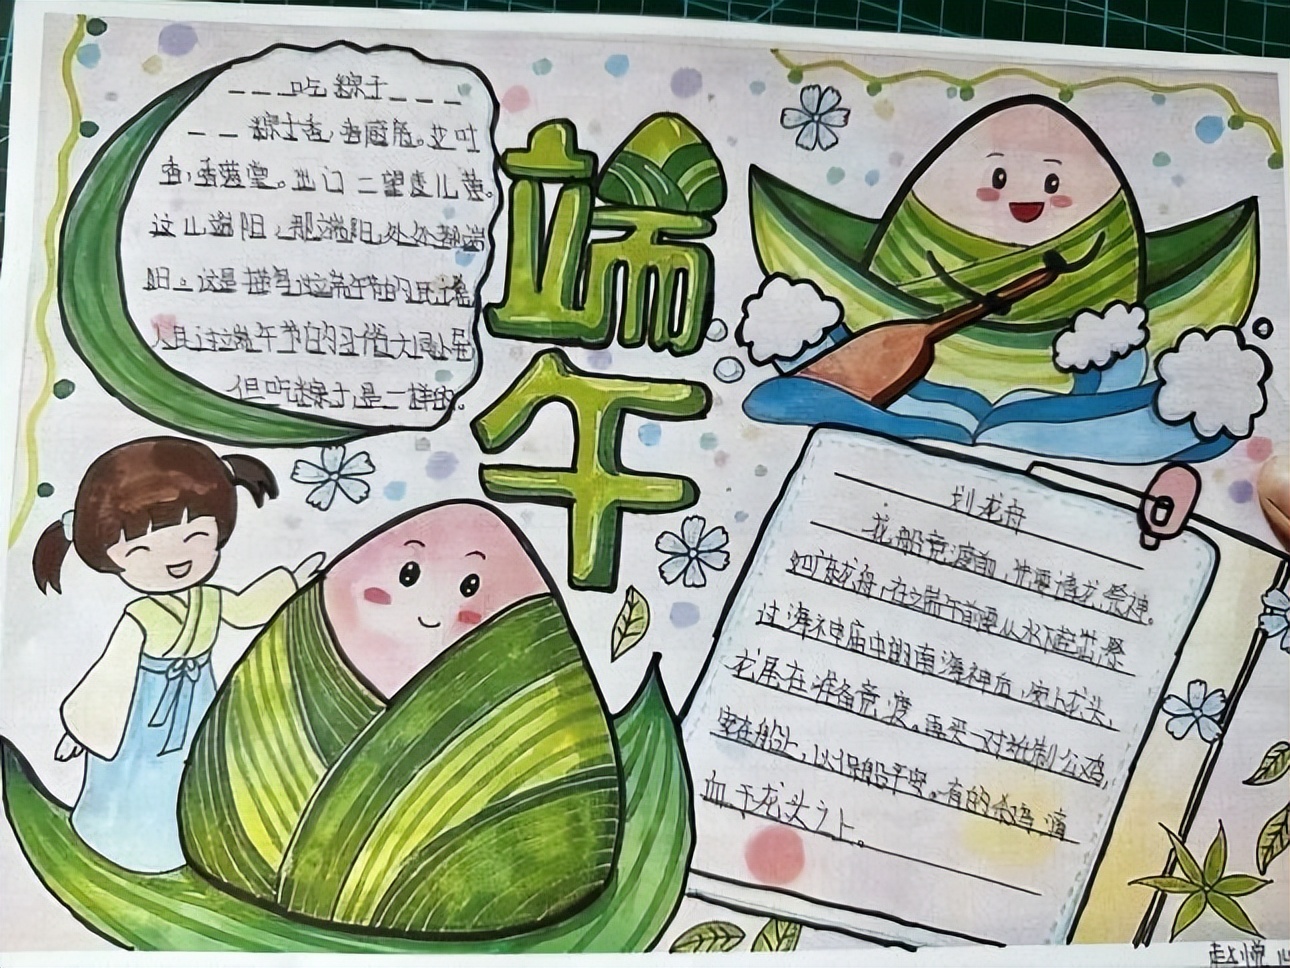 吃粽子
粽子香，香厨房。艾叶
香，香满堂。出门一望麦儿黄。
这儿端阳，那端阳，处处都端
阳。这是描写过端午节的习民谣，
人民过端午节的习俗大同小异
但吃粽子是一样的。
端午
划龙舟
龙船竞渡前，先要请龙、祭神。
如广东龙舟，在端午前要从水下起出，祭
过海神庙中的南海神后，安上龙头、
龙尾在准备竞渡。再买一对纸制公鸡，
安在船上，以保船平安。有的杀鸡滴
血于龙头之上。